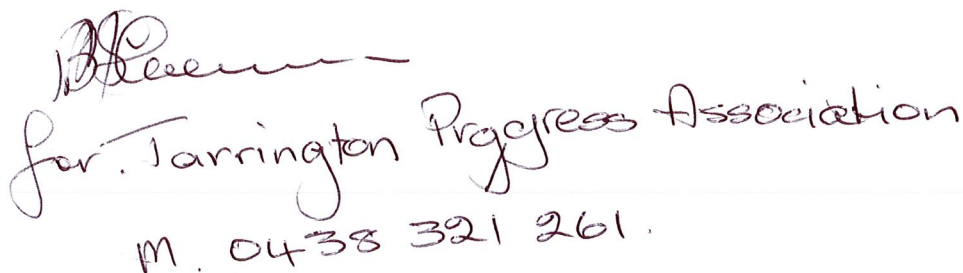 for. Tarrington Progress Association
M. 0438 321 261.